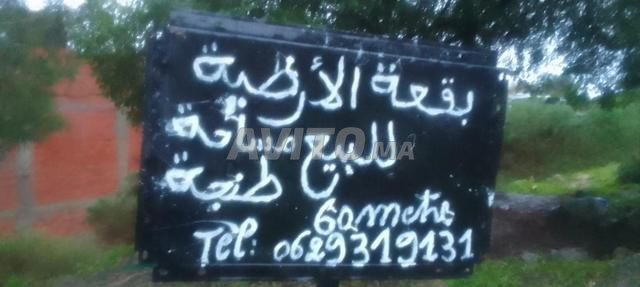 بقعة الأرظية
للبيع مساحة
طنجة
60 metre
Tel: 0629319131
AVITO.MA